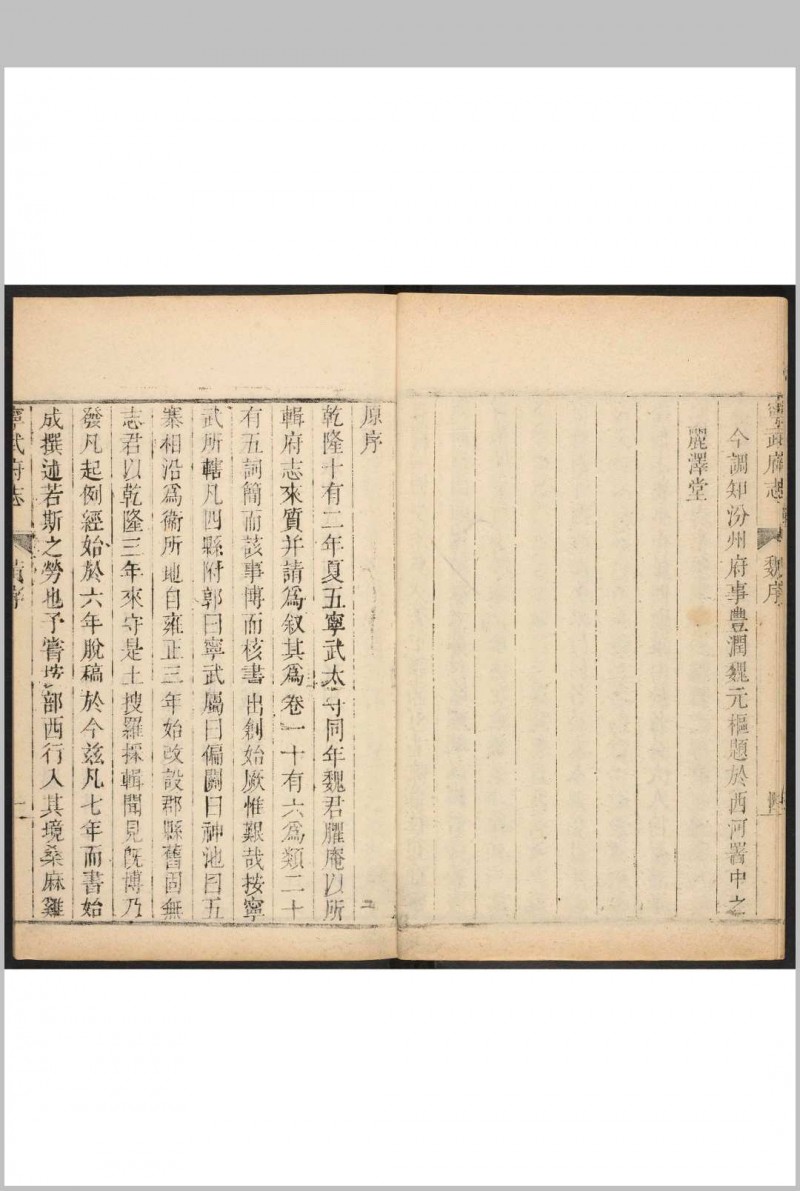 寧武府志
魏序
今調知汾州府事豊潤魏元樞題於西河署中之
麗澤堂
原序
乾隆十有二年夏五寧武太守同年魏君臞庵以所
輯府志來質并請爲叙其爲卷一十有六爲類二十
有五詞簡而該事博而核書出創始厥惟艱哉按寧
武所轄凡四縣附郭曰寧武屬曰偏關曰神池曰五
寨相沿爲衛所地自雍正三年始改設郡縣舊固無
志君以乾隆三年來守是土搜羅採輯聞見旣博乃
發凡起例經始於六年脫稿於今玆凡七年而書始
成撰述若斯之勞也予嘗按部西行入其境桑麻雞
寧武府志
序
一